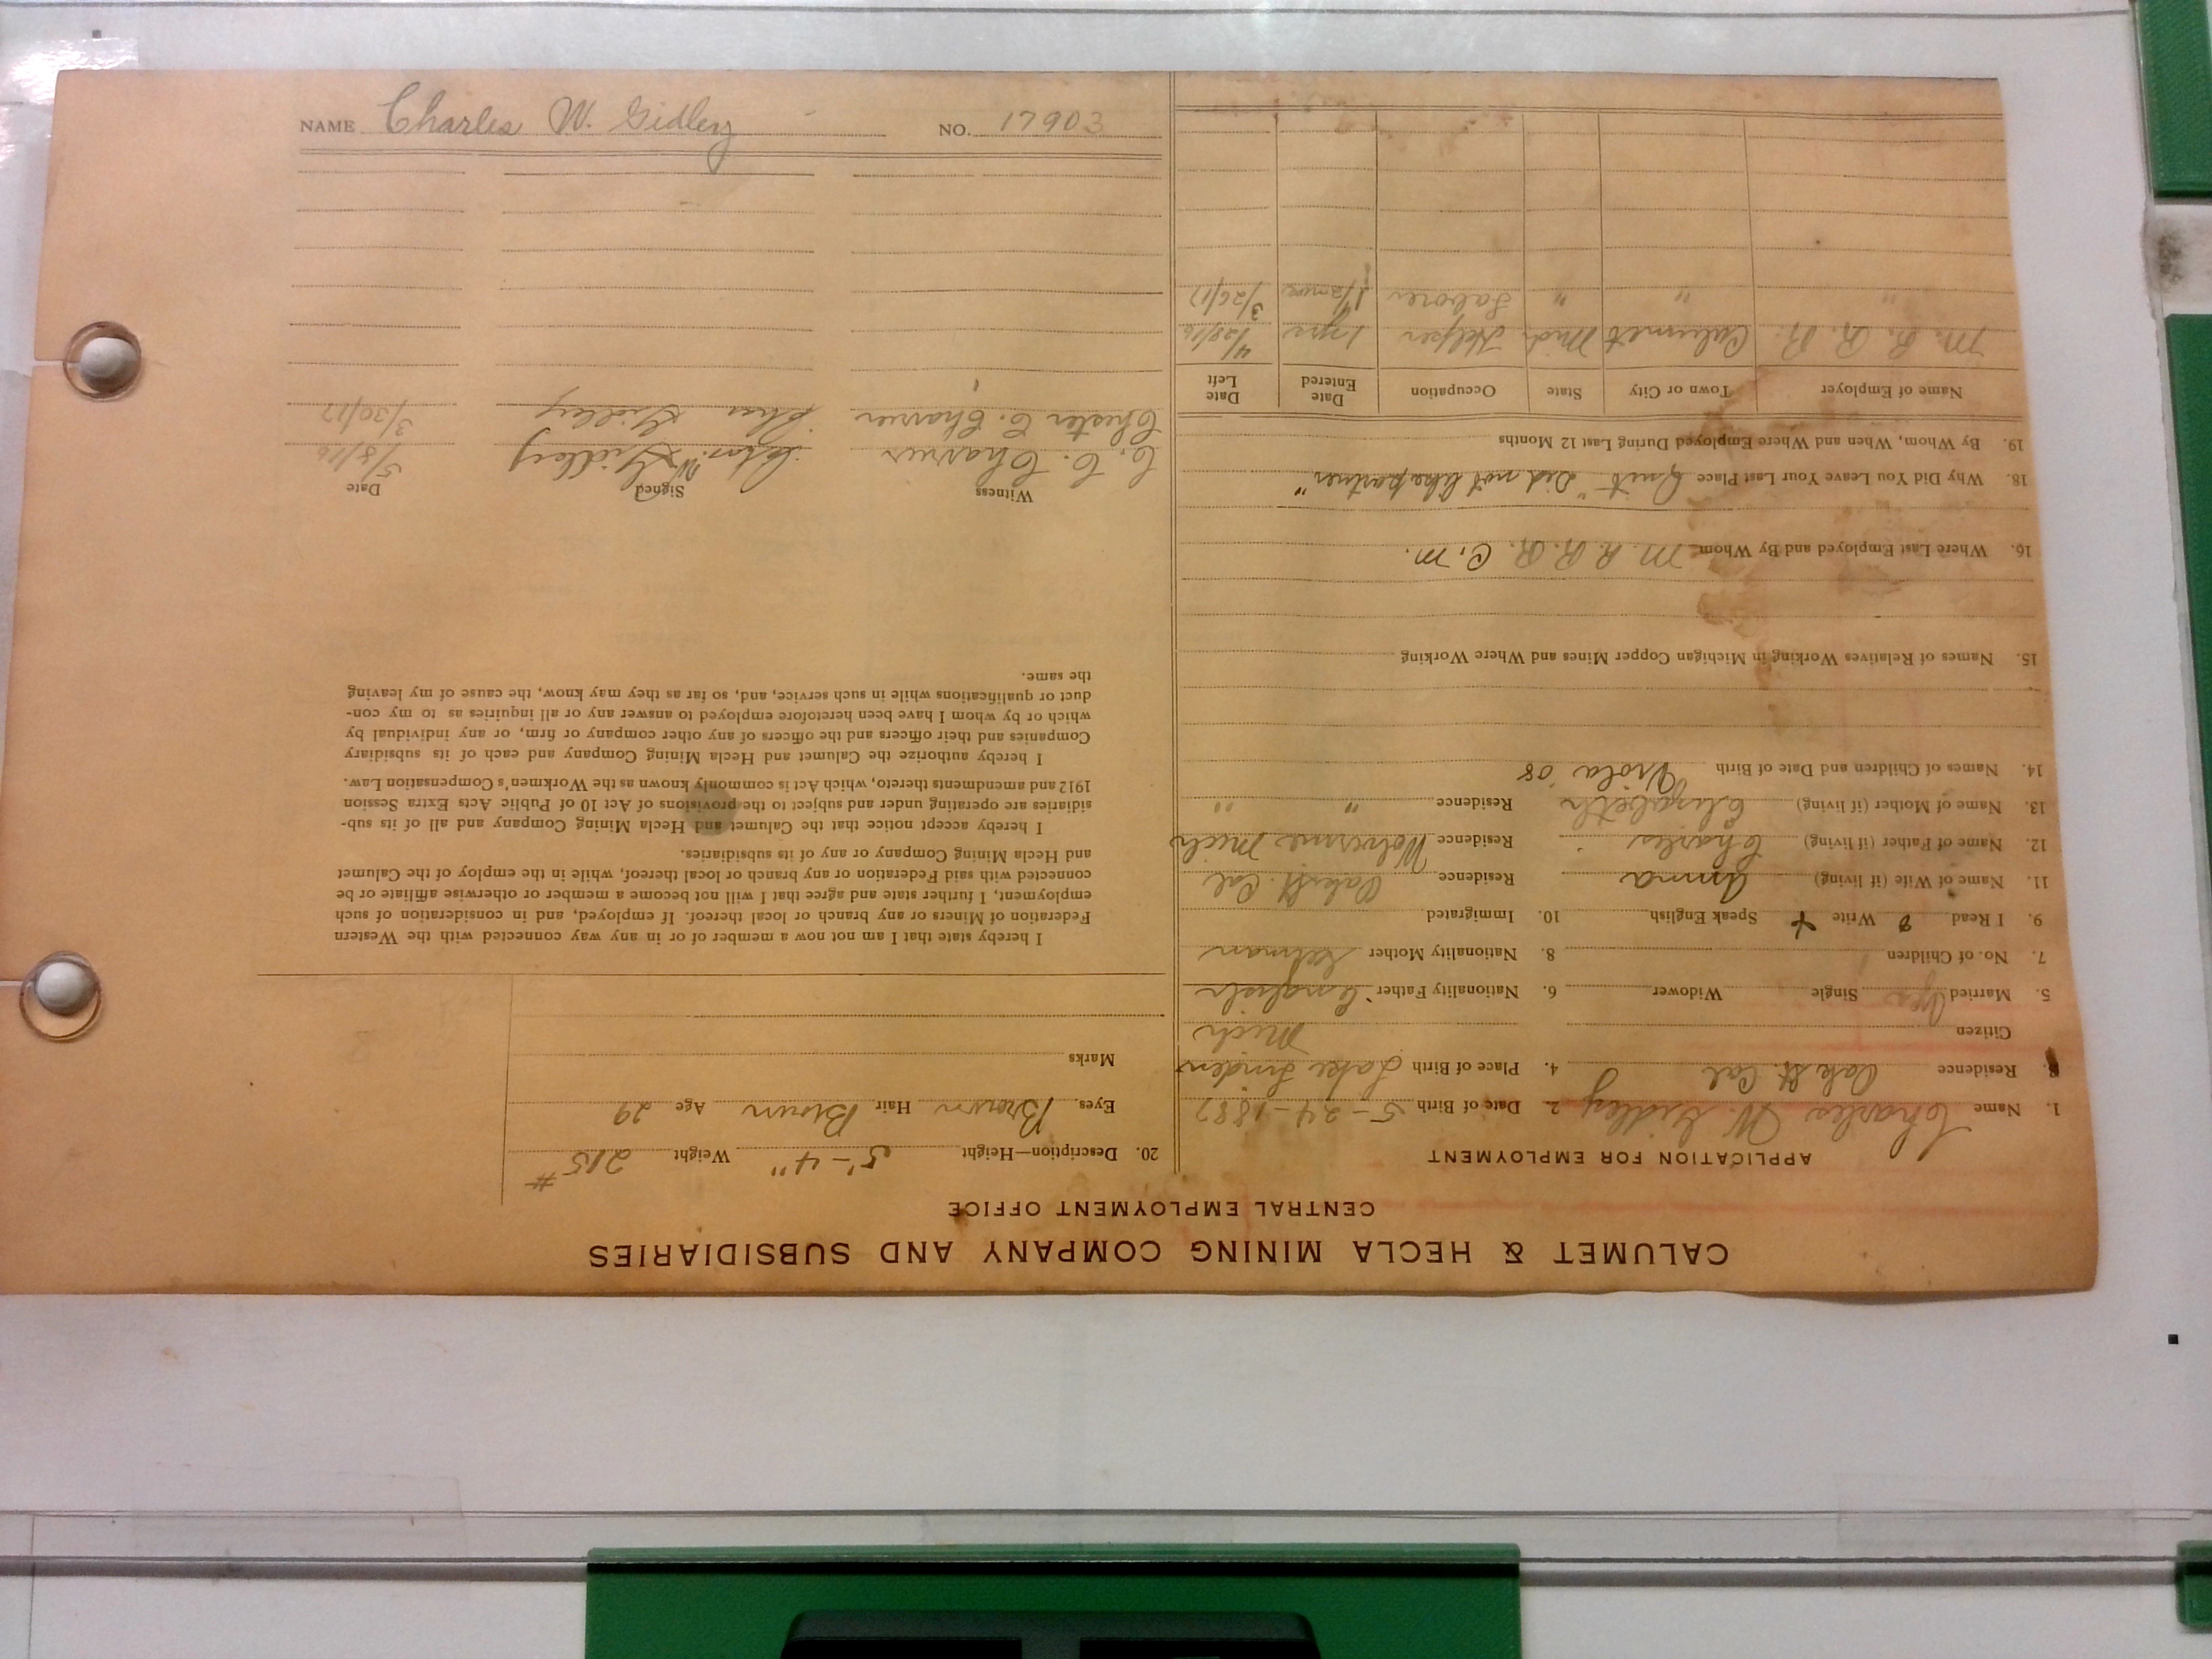 NAME Charles W. Gidley NO. 17903
CALUMET & HECLA MINING COMPANY AND SUBSIDIARIES
CENTRAL EMPLOYMENT OFFICE
APPLICATION FOR EMPLOYMENT
1. Name Charles W. Gidley 2. Date of Birth 5-24-1887
3. Residence Oak St. Cal 4. Place of Birth Lake Linden
Citizen Mich
5. Married yes Single Widower 6. Nationality Father English
7. No. of Children 8. Nationality Mother
9. I Read Write Speak English 10. Immigrated
11. Name of Wife (if living) Anna Residence Oak St. Cal
12. Name of Father (if living) Charles Residence Wolverine Mich
13. Name of Mother (if living) Elizabeth Residence " "
14. Names of Children and Date of Birth Viola '08
15. Names of Relatives Working in Michigan Copper Mines and Where Working
16. Where Last Employed and By Whom M. R. R. R. C. M.
18. Why Did You Leave Your Last Place Quit "Did not like partner"
19. By Whom, When and Where Employed During Last 12 Months
Name of Employer Town or City State Occupation Date Entered Date Left
M. R. R. R. Calumet Mich Helper 1 yr 4/28/16
" " " Laborer 3/26/17
20. Description—Height 5'-4" Weight 215#
Eyes Brown Hair Brown Age 29
Marks
I hereby state that I am not now a member of or in any way connected with the Western
Federation of Miners or any branch or local thereof. If employed, and in consideration of such
employment, I further state and agree that I will not become a member or otherwise affiliate or be
connected with said Federation or any branch or local thereof, while in the employ of the Calumet
and Hecla Mining Company or any of its subsidiaries.
I hereby accept notice that the Calumet and Hecla Mining Company and all of its sub-
sidiaries are operating under and subject to the provisions of Act 10 of Public Acts Extra Session
1912 and amendments thereto, which Act is commonly known as the Workmen's Compensation Law.
I hereby authorize the Calumet and Hecla Mining Company and each of its subsidiary
Companies and their officers and the officers of any other company or firm, or any individual by
which or by whom I have been heretofore employed to answer any or all inquiries as to my con-
duct or qualifications while in such service, and, so far as they may know, the cause of my leaving
the same.
Date Signed Witness
5/8/16 Chas. W. Gidley C. C.
3/30/17 Chas Gidley Chester C.